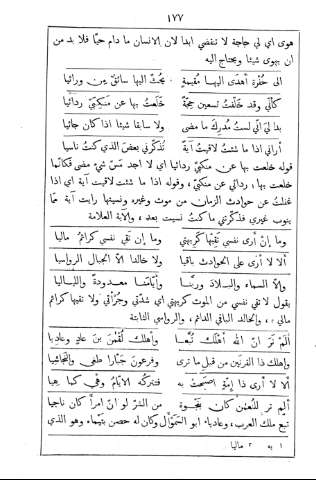 ١٧٧
هوى اي لي حاجة لا تنقضي ابدا لان الانسان ما دام حيّا فلا بد من
ان يهوى شيئا ويحتاج اليه
الى حُفْرة أُهدَى اليها مُقيمةٍ يحُثّ اليها سائق من ورائيا
كأنّي وقد خَلَّفتُ تسعين حجّةً خلعتُ بها عن مَنْكِبَيَّ ردائيا
بدا ليَ أنّي لستُ مُدرِكَ ما مضى ولا سابقا شيئا اذا كان جائيا
أراني اذا ما شئتُ لاقيتُ آيةً تُذكّرني بعضَ الذي كنتُ ناسيا
قوله خلعت بها عن منكبيّ ردائيا اي لا اجد مسّ شيء مضى فكانما
خلعت بها ردائي عن منكبيّ، وقوله اذا ما شئت لاقيت آية اي اذا
غفلتُ عن حوادث الزمان من موت وغيره ونسيتها رايت آية مما
ينوب غيري فذكّرتني ما كنت نسيت بعد، والآية العلامة
وما إنْ أرى نفسي تَقيها كريهتي وما إن تَقي نفسي كرائمُ ماليا
ألا لا أرى على الحوادث باقيا ولا خالدا الّا الجبالَ الرواسيا
وإلّا السماءَ والبلادَ وربَّنا وأيّامَنا معدودةً واللياليا
يقول لا تقي نفسي من الموت كريهتي اي شدّتي وجُرْأتي ولا تقيها كرائم
مالي، والخالد الباقي الدائم، والرواسي الثابتة
أَلم تَرَ انّ اللهَ أَهلَك تُبَّعا وأَهلك لُقمٰنَ بنَ عادٍ وعاديا
وأَهلك ذا القرنَين من قبل ما ترى وفرعونَ جبّارا طغى والنجاشيا
ألا لا أرى ذا إمّةٍ أَصبَحَتْ به فتتركُه الأيّامُ وهْي كما هيا
أَلم تر للنُعمٰن كان بنَجْوةٍ من الشرّ لو انّ امرأً كان ناجيا
تبع ملك العرب، وعادياء ابو السموأل وكان له حصن بتيماء وهو الذي
١ به ٢ ماليا